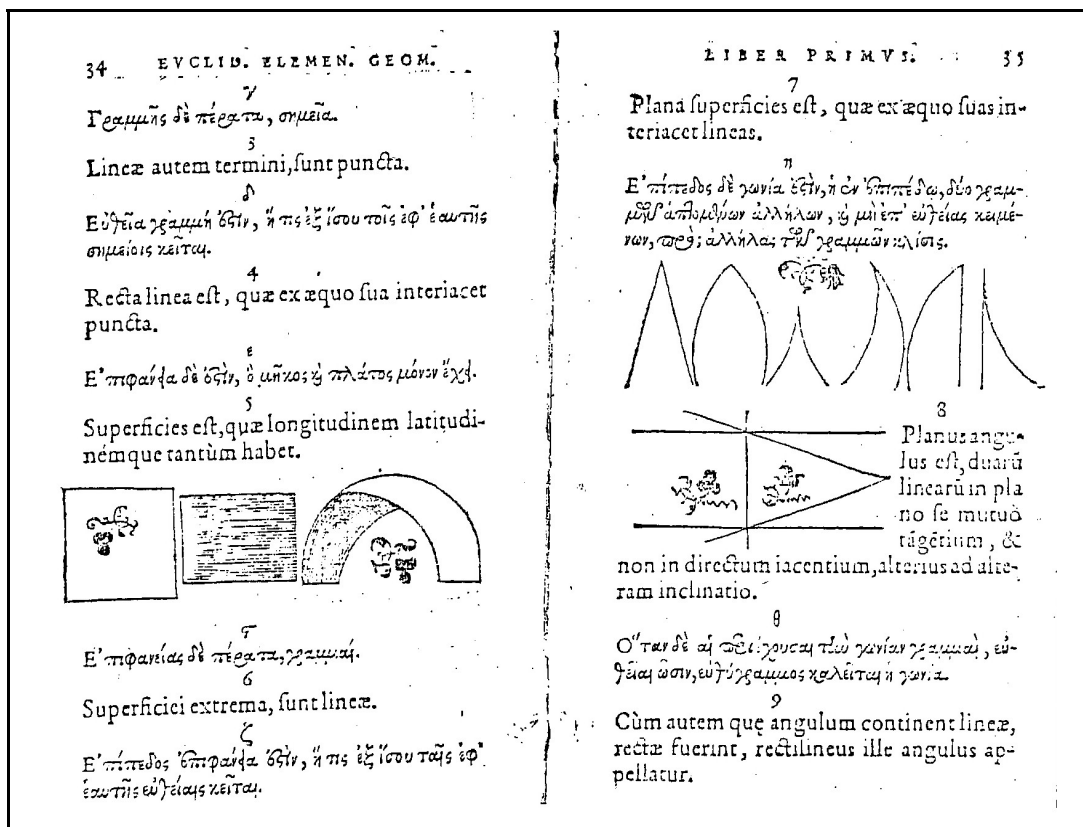 34 EVCLID. ELEMEN. GEOM.
γ
Γραμμῆς δὲ πέρατα, σημεῖα.
3
Lineæ autem termini, ſunt puncta.
δ
Εὐθεῖα γραμμή ἐςὶν, ἥ τις ἐξ ἴσου τοῖς ἐφ᾽ ἑαυτῆς
σημείοις κεῖται.
4
Recta linea eſt, quæ ex æquo ſua interiacet
puncta.
ε
Ε᾽πιφάνεια δὲ ἐςὶν, ὃ μῆκος ϗ πλάτος μόνον ἔχει.
5
Superficies eſt, quæ longitudinem latitudi-
némque tantùm habet.
ϛ
Ε᾽πιφανείας δὲ πέρατα, γραμμαί.
6
Superficiei extrema, ſunt lineæ.
ζ
Ε᾽πίπεδος ἐπιφάνεια ἐςὶν, ἥ τις ἐξ ἴσου ταῖς ἐφ᾽
ἑαυτῆς εὐθείαις κεῖται.
LIBER PRIMVS. 35
7
Plana ſuperficies eſt, quæ ex æquo ſuas in-
teriacet lineas.
η
Ε᾽πίπεδος δὲ γωνία ἐςὶν, ἡ ἐν ἐπιπέδῳ, δύο γραμ-
μῶν ἁπτομένων ἀλλήλων, ϗ μὴ ἐπ᾽ εὐθείας κειμέ-
νων, πρὸς ἀλλήλας τῶν γραμμῶν κλίσις.
8
Planus angu-
lus eſt, duarū
linearū in pla
no ſe mutuò
tāgētium, &
non in directum iacentium, alterius ad alte-
ram inclinatio.
θ
Ο῞ταν δὲ αἱ περιέχουσαι τὴν γωνίαν γραμμαὶ, εὐ-
θεῖαι ὦσιν, εὐθύγραμμος καλεῖται ἡ γωνία.
9
Cùm autem quę angulum continent lineæ,
rectæ fuerint, rectilineus ille angulus ap-
pellatur.